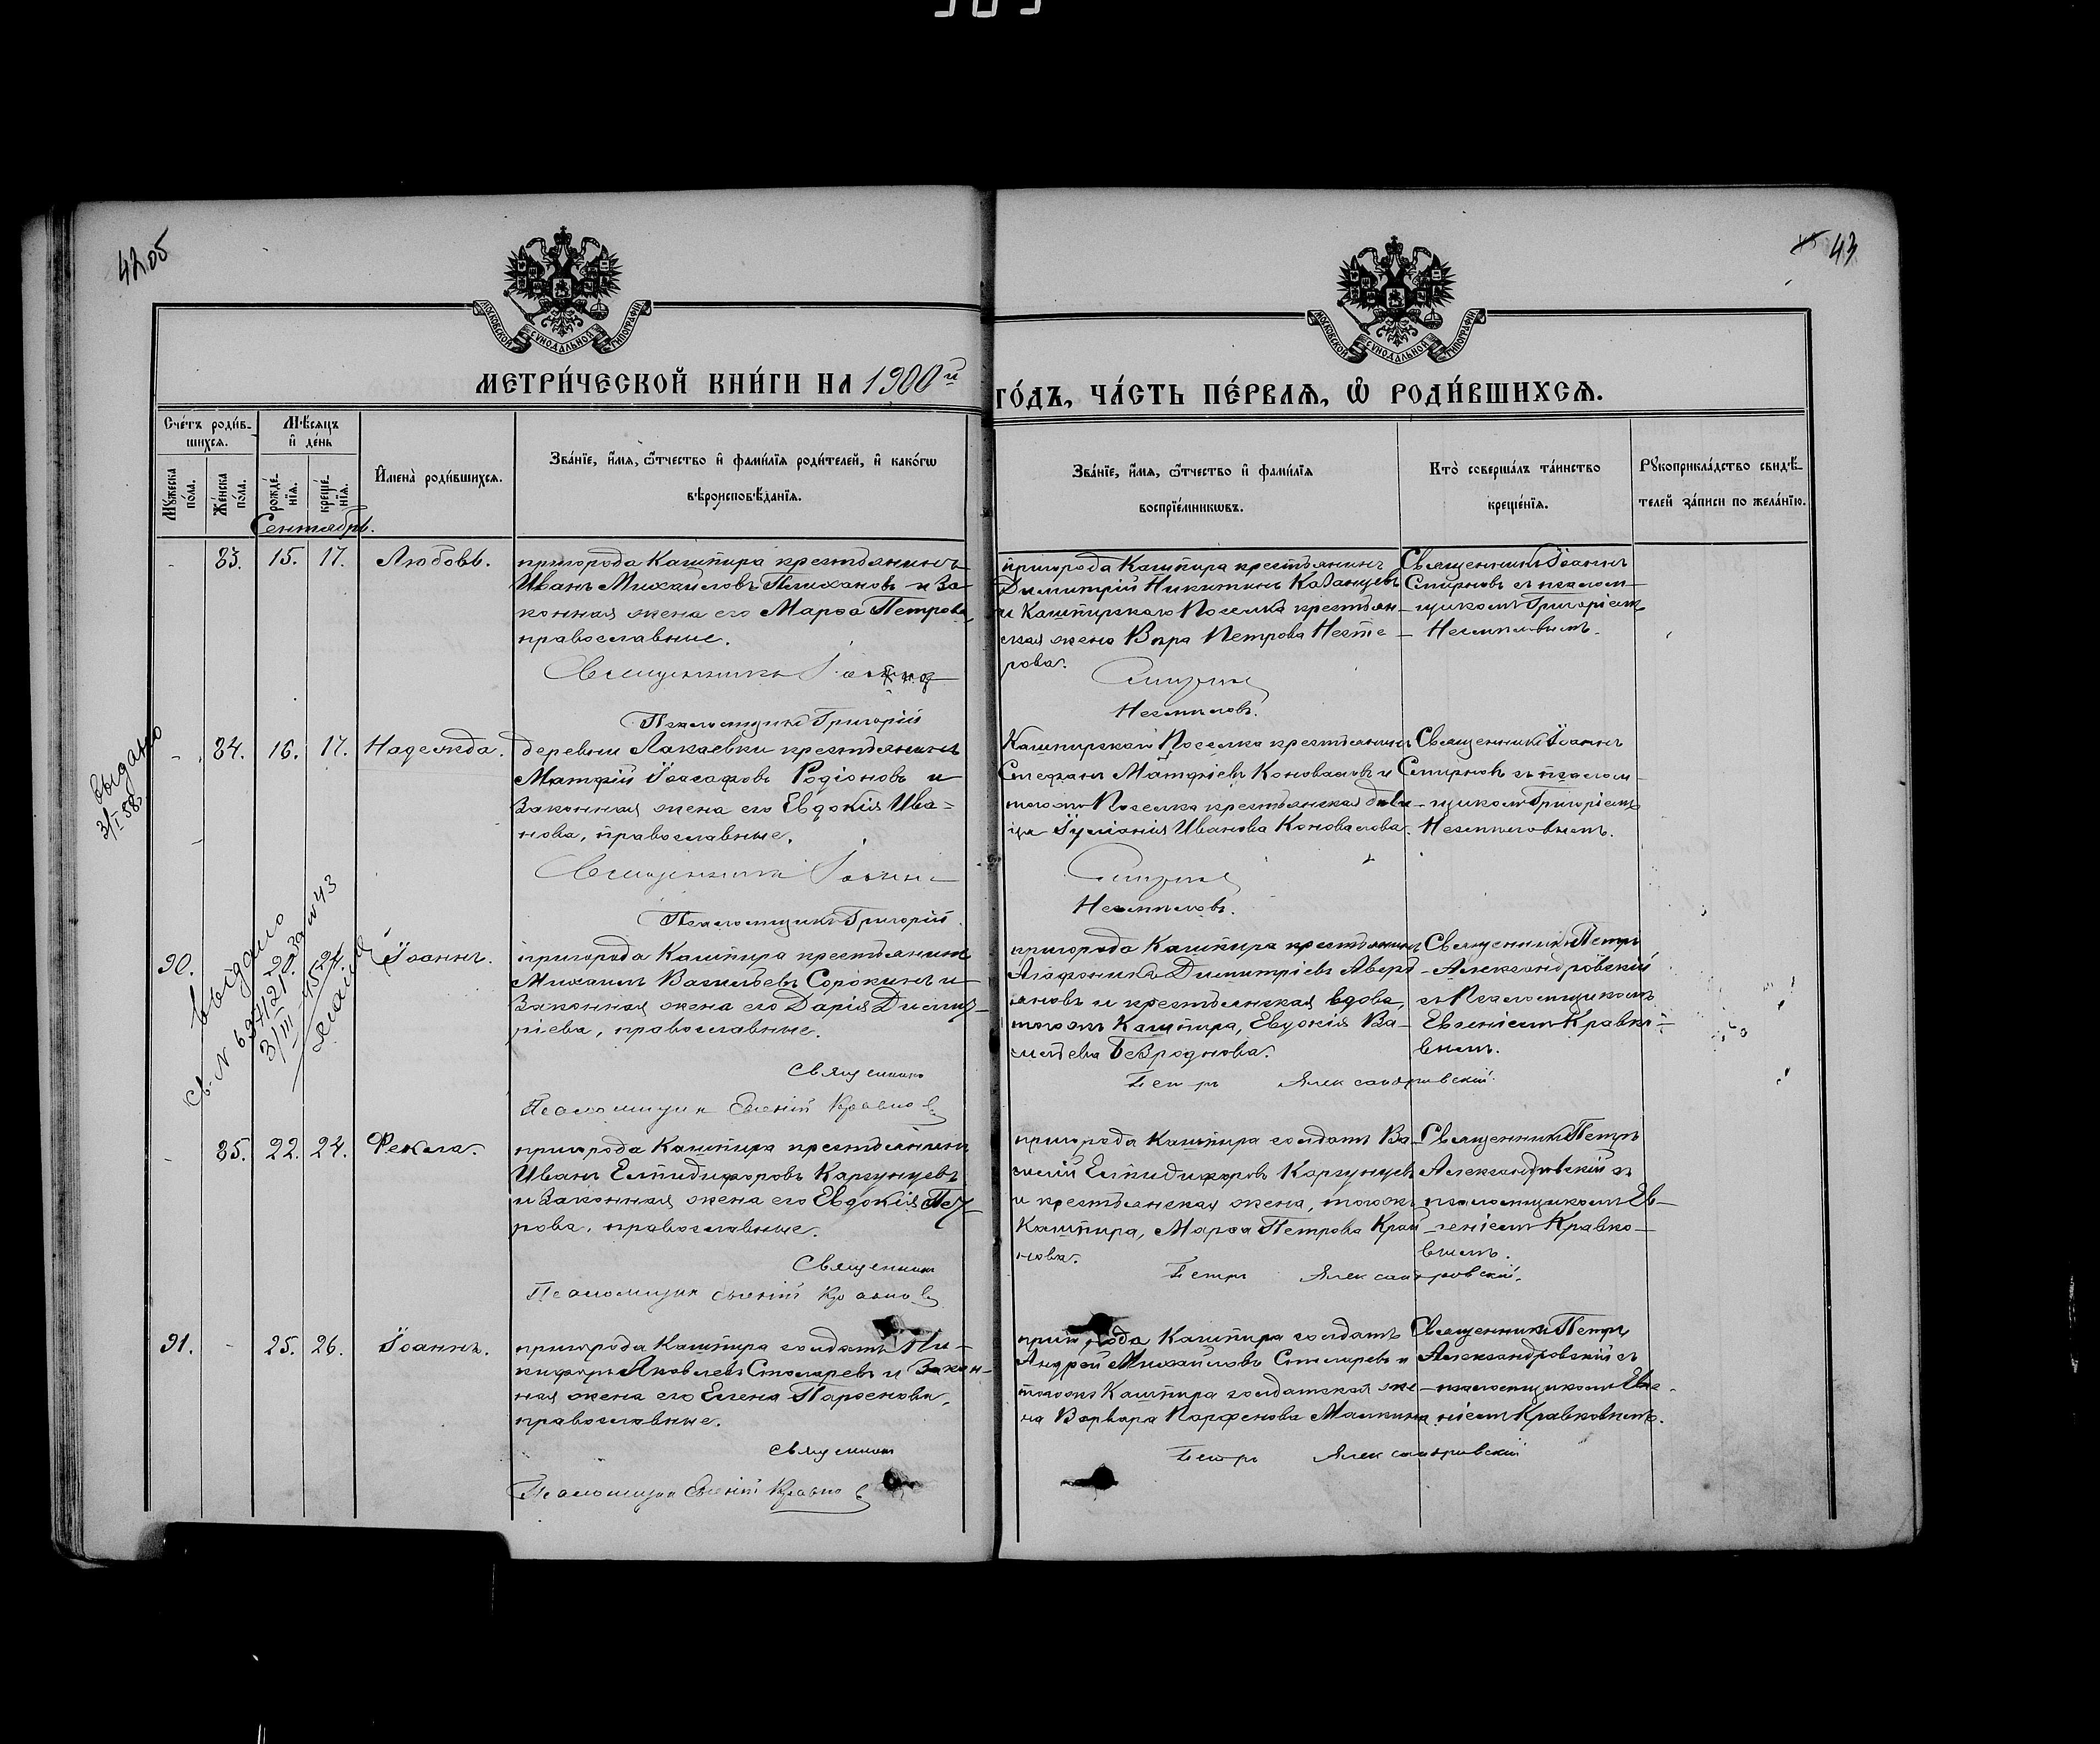 42об
43
МОСКОВСКОЙ СѴНОДАЛЬНОЙ ТИПОГРАФІИ
МОСКОВСКОЙ СѴНОДАЛЬНОЙ ТИПОГРАФІИ
МЕТРИ́ЧЕСКОЙ КНИ́ГИ НА 1900й
ГО́ДЪ, ЧА́СТЬ ПЕ́РВАЯ, Ѽ РОДИ́ВШИХСЯ.
Сче́тъ роди́в-
шихся.
Мѣ́сяцъ
и де́нь
Мꙋ́жеска по́ла.
Же́нска по́ла.
рожде́-
нїя.
креще́-
нїя.
Имена̀ роди́вшихся.
Зва́нїе, и́мя, ѻ́тчество и фами́лїя роди́телей, и како́гѡ
вѣроисповѣ́данїя.
Зва́нїе, и́мя, ѻ́тчество и фами́лїя
воспрїе́мникѡвъ.
Кто̀ соверша́лъ та́инство
креще́нїя.
Рꙋкоприкла́дство свидѣ́-
телей за́писи по жела́нїю.
Сентябрь.
- 83. 15. 17. Любовь.
пригорода Кашпира крестьянинъ
Иванъ Михайловъ Плихановъ и за-
конная жена его Марѳа Петрова,
православные.
Священникъ Іоаннъ
Псаломщикъ Григорій
пригорода Кашпира крестьянинъ
Димитрій Никитинъ Казанцевъ
и Кашпирскаго Поселка крестьян-
ская жена Вѣра Петрова Несте-
рова.
Смирновъ
Несмѣловъ.
Священникъ Іоаннъ
Смирновъ съ псалом-
щикомъ Григоріемъ
Несмѣловымъ.
выдано
3/I 58
- 84. 16. 17. Надежда.
деревни Лакаевки крестьянинъ
Матфій Іоасафовъ Родіоновъ и
законная жена его Евдокія Ива-
нова, православные.
Священникъ Іоаннъ
Псаломщикъ Григорій
Кашпирскаго Поселка крестьянинъ
Стефанъ Матфіевъ Коноваловъ и
тогоже Поселка крестьянская дѣви-
ца Іуліанія Иванова Коновалова.
Смирновъ
Несмѣловъ.
Священникъ Іоаннъ
Смирновъ съ псалом-
щикомъ Григоріемъ
Несмѣловымъ.
выдано
90. 20. 24. Іоаннъ.
пригорода Кашпира крестьянинъ
Михаилъ Васильевъ Сорокинъ и
законная жена его Дарія Димит-
ріева, православные.
Священникъ
Псаломщикъ Евгеній Кравковъ
пригорода Кашпира крестьянинъ
Агафоникъ Димитріевъ Аверь-
яновъ и крестьянская вдова,
тогожъ Кашпира, Евдокія Ва-
сильева Безроднова.
Петръ Александровскій.
Священникъ Петръ
Александровскій
съ Псаломщикомъ
Евгеніемъ Кравко-
вымъ.
- 85. 22. 24. Фекла.
пригорода Кашпира крестьянинъ
Иванъ Елпидифоровъ Каргунцевъ
и законная жена его Евдокія Пет-
рова, православные.
Священникъ
Псаломщикъ Евгеній Кравковъ
пригорода Кашпира солдатъ Ва-
силій Елпидифоровъ Каргунцевъ
и крестьянская жена, тогожъ
Кашпира, Марѳа Петрова Край-
нова.
Петръ Александровскій.
Священникъ Петръ
Александровскій съ
псаломщикомъ Ев-
геніемъ Кравко-
вымъ.
91. - 25. 26. Іоаннъ.
пригорода Кашпира солдатъ Ни-
кифоръ Яковлевъ Столяревъ и закон-
ная жена его Елена Парѳенова,
православные.
Священникъ
Псаломщикъ Евгеній Кравковъ
пригорода Кашпира солдатъ
Андрей Михайловъ Столяревъ и
тогожъ Кашпира солдатская же-
на Варвара Парфенова Малкина
Петръ Александровскій
Священникъ Петръ
Александровскій съ
псаломщикомъ Евге-
ніемъ Кравковымъ.